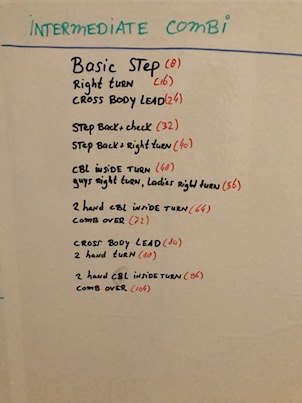 INTERMEDIATE COMBI
Basic Step (8)
Right turn (16)
CROSS BODY LEAD (24)
Step Back + check (32)
Step Back + Right turn (40)
CBL inside turn (48)
guys right turn, Ladies right turn (56)
2 hand CBL inside turn (64)
comb over (72)
CROSS BODY LEAD (80)
2 hand turn (88)
2 hand CBL inside turn (96)
comb over (104)